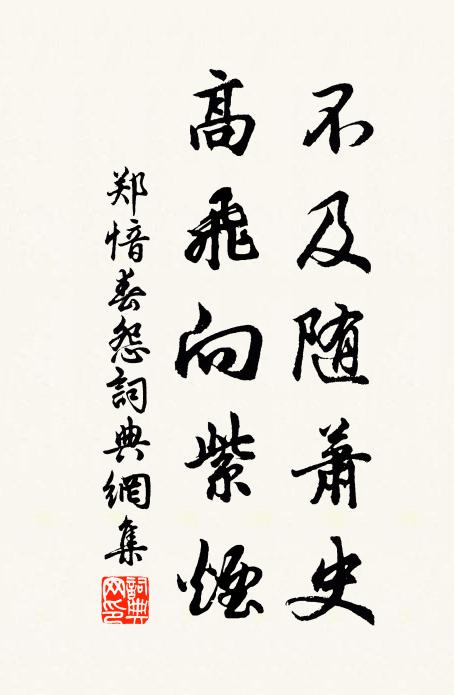 不及随萧史
高飛向紫煙
郑愔春怨詞典網集
詞典網印